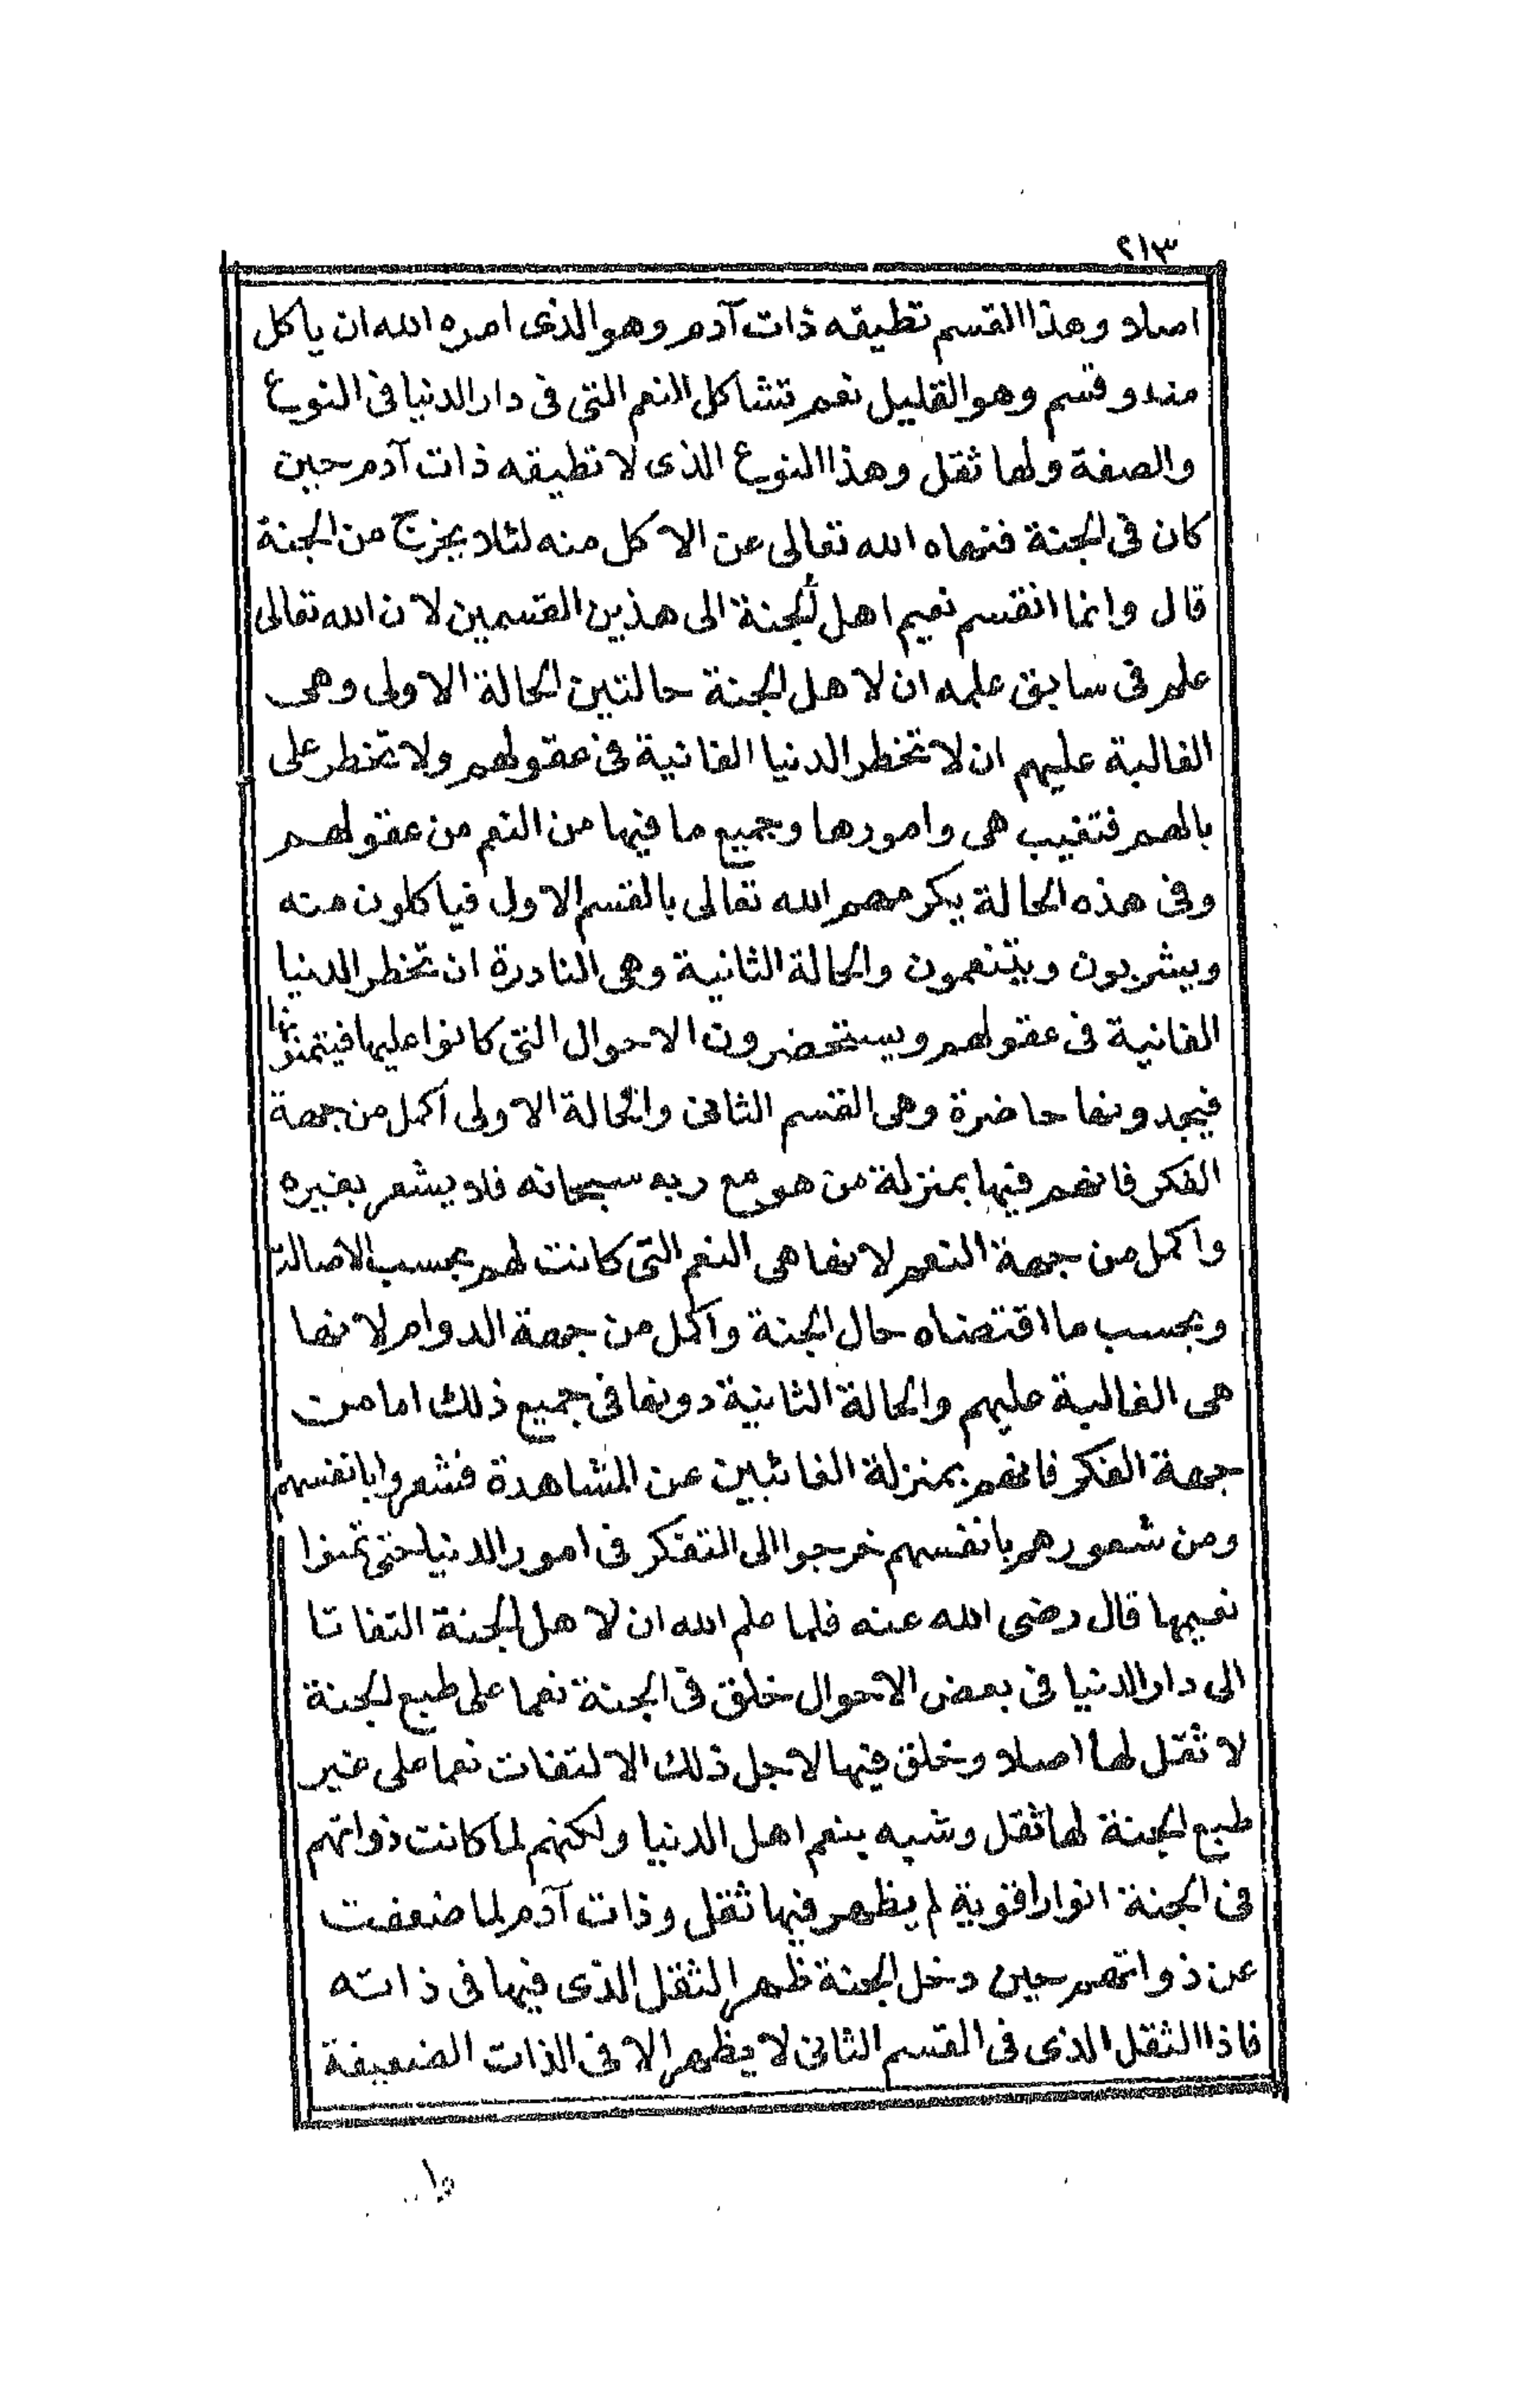 ٢١٣
اصلا وهذا القسم تطيقه ذات آدم وهو الذى امره الله ان ياكل
منه وقسم وهو القليل نعم تشاكل النعم التى فى دار الدنيا فى النوع
والصفة ولها ثقل وهذا النوع الذى لا تطيقه ذات آدم حين
كان فى الجنة فنهاه الله تعالى عن الاكل منه لئلا يخرج من الجنة
قال وانما انقسم نعيم اهل الجنة الى هذين القسمين لان الله تعالى
علم فى سابق علمه ان لاهل الجنة حالتين الحالة الاولى وهى
الغالبة عليهم ان لا تخطر الدنيا الفانية فى عقولهم ولا تخطر على
بالهم فتغيب هى وامورها وجميع ما فيها من النعم من عقولهم
وفى هذه الحالة يكرمهم الله تعالى بالقسم الاول فياكلون منه
ويشربون ويتنعمون والحالة الثانية وهى النادرة ان تخطر الدنيا
الفانية فى عقولهم ويستحضرون الاحوال التى كانوا عليها فيتمنونها
فيجدونها حاضرة وهى القسم الثانى والحالة الاولى اكمل من جهة
الفكر فانهم فيها بمنزلة من هو مع ربه سبحانه فلا يشعر بغيره
واكمل من جهة النعم لانها هى النعم التى كانت لهم بحسب الاصالة
وبحسب ما اقتضاه حال الجنة واكمل من جهة الدوام لانها
هى الغالبة عليهم والحالة الثانية دونها فى جميع ذلك اما من
جهة الفكر فانهم بمنزلة الغائبين عن المشاهدة فشعروا بانفسهم
ومن شعورهم بانفسهم خرجوا الى التفكر فى امور الدنيا حتى تمنوا
نعيمها قال رضى الله عنه فلما علم الله ان لاهل الجنة التفاتا
الى دار الدنيا فى بعض الاحوال خلق فى الجنة نعما على طبع الجنة
لا ثقل لها اصلا وخلق فيها لاجل ذلك الالتفات نعما على غير
طبع الجنة لها ثقل وشبه بنعم اهل الدنيا ولكنهم لما كانت ذواتهم
فى الجنة انوارا قوية لم يظهر فيها ثقل وذات آدم لما ضعفت
عن ذواتهم حين دخل الجنة ظهر الثقل الذى فيها فى ذاته
فاذا الثقل الذى فى القسم الثانى لا يظهر الا فى الذات الضعيفة